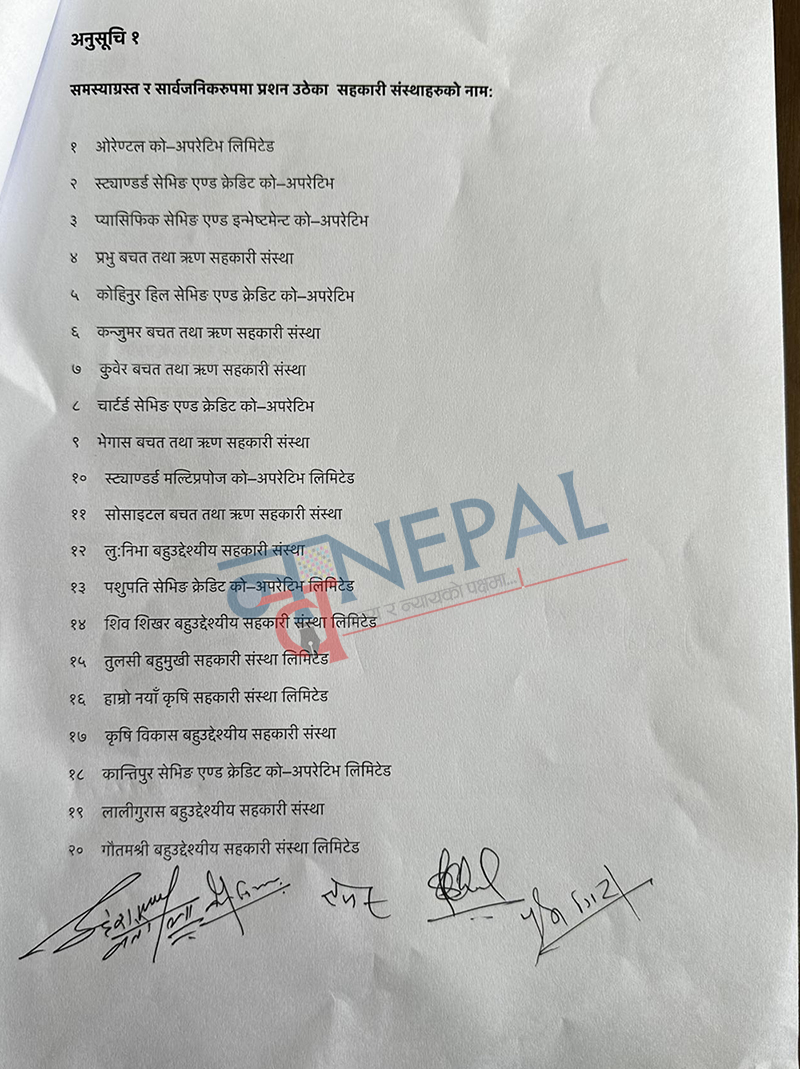 अनुसूचि १
समस्याग्रस्त र सार्वजनिकरुपमा प्रशन उठेका सहकारी संस्थाहरुको नाम:
१ ओरेण्टल को–अपरेटिभ लिमिटेड
२ स्ट्याण्डर्ड सेभिङ एण्ड क्रेडिट को–अपरेटिभ
३ प्यासिफिक सेभिङ एण्ड इन्भेष्टमेन्ट को–अपरेटिभ
४ प्रभु बचत तथा ऋण सहकारी संस्था
५ कोहिनुर हिल सेभिङ एण्ड क्रेडिट को–अपरेटिभ
६ कन्जुमर बचत तथा ऋण सहकारी संस्था
७ कुवेर बचत तथा ऋण सहकारी संस्था
८ चार्टर्ड सेभिङ एण्ड क्रेडिट को–अपरेटिभ
९ भेगास बचत तथा ऋण सहकारी संस्था
१० स्ट्याण्डर्ड मल्टिप्रपोज को–अपरेटिभ लिमिटेड
११ सोसाइटल बचत तथा ऋण सहकारी संस्था
१२ लु:निभा बहुउद्देश्यीय सहकारी संस्था
१३ पशुपति सेभिङ क्रेडिट को–अपरेटिभ लिमिटेड
१४ शिव शिखर बहुउद्देश्यीय सहकारी संस्था लिमिटेड
१५ तुलसी बहुमुखी सहकारी संस्था लिमिटेड
१६ हाम्रो नयाँ कृषि सहकारी संस्था लिमिटेड
१७ कृषि विकास बहुउद्देश्यीय सहकारी संस्था
१८ कान्तिपुर सेभिङ एण्ड क्रेडिट को–अपरेटिभ लिमिटेड
१९ लालीगुरास बहुउद्देश्यीय सहकारी संस्था
२० गौतमश्री बहुउद्देश्यीय सहकारी संस्था लिमिटेड
NEPAL
र न्यायको पक्षमा...